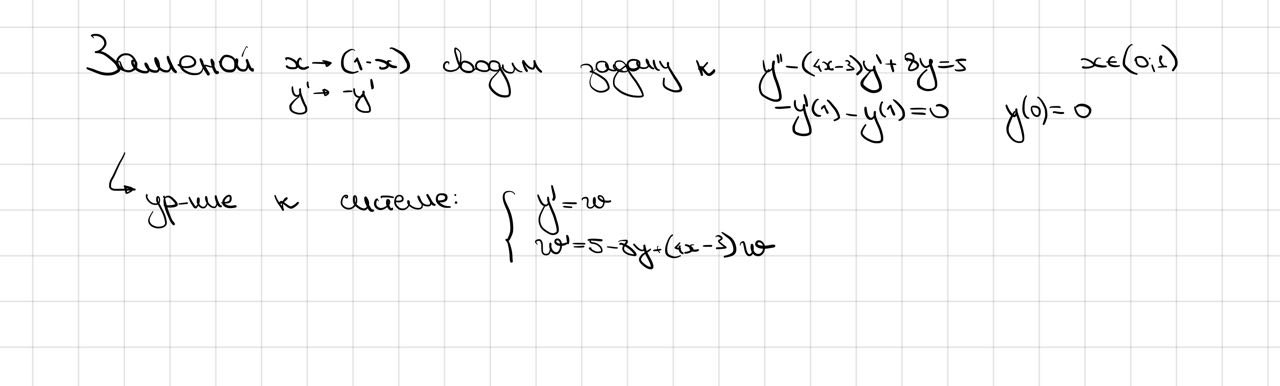 Заменой x→(1-x) сводим задачу к y''-(4x-3)y'+8y=5 x∈(0,1)
y'→-y' -y'(1)-y(1)=0 y(0)=0
↳ ур-ние к системе: { y'=w
w'=5-8y+(4x-3)w